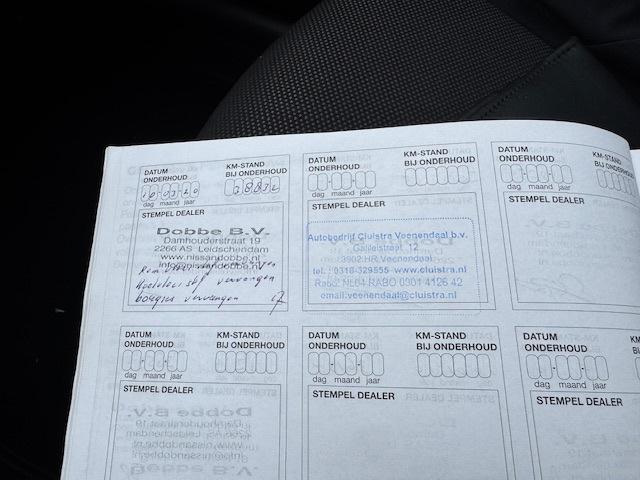 DATUM
ONDERHOUD
KM-STAND
BIJ ONDERHOUD
dag maand jaar
STEMPEL DEALER
Dobbe B.V.
Damhouderstraat 19
2266 AS Leidschendam
www.nissandobbe.nl
info@nissandobbe.nl
vervangen
Koelvloeistof vervangen
bougies vervangen
DATUM
ONDERHOUD
KM-STAND
BIJ ONDERHOUD
dag maand jaar
STEMPEL DEALER
Autobedrijf Cluistra Veenendaal b.v.
Galileistraat 12
3902 HR Veenendaal
tel.: 0318-529555 www.cluistra.nl
Rabo: NL04 RABO 0301 4126 42
email:veenendaal@cluistra.nl
DATUM
ONDERHOUD
KM-STAND
BIJ ONDERHOUD
dag maand jaar
STEMPEL DEALER
DATUM
ONDERHOUD
KM-STAND
BIJ ONDERHOUD
dag maand jaar
STEMPEL DEALER
DATUM
ONDERHOUD
KM-STAND
BIJ ONDERHOUD
dag maand jaar
STEMPEL DEALER
DATUM
ONDERHOUD
dag maand jaar
STEMPEL DEALER